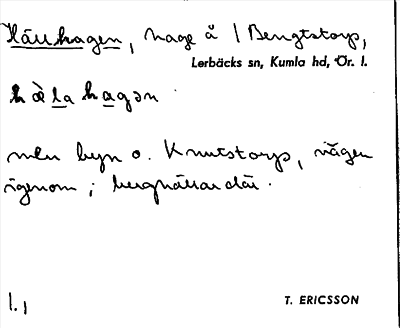 Hällhagen, hage å 1 Bengtstorp,
Lerbäcks sn, Kumla hd, Ör. l.
hὰla hagən
mellan byn o. Knutstorp, vägen
igenom; berghällar där.
1.1
T. ERICSSON